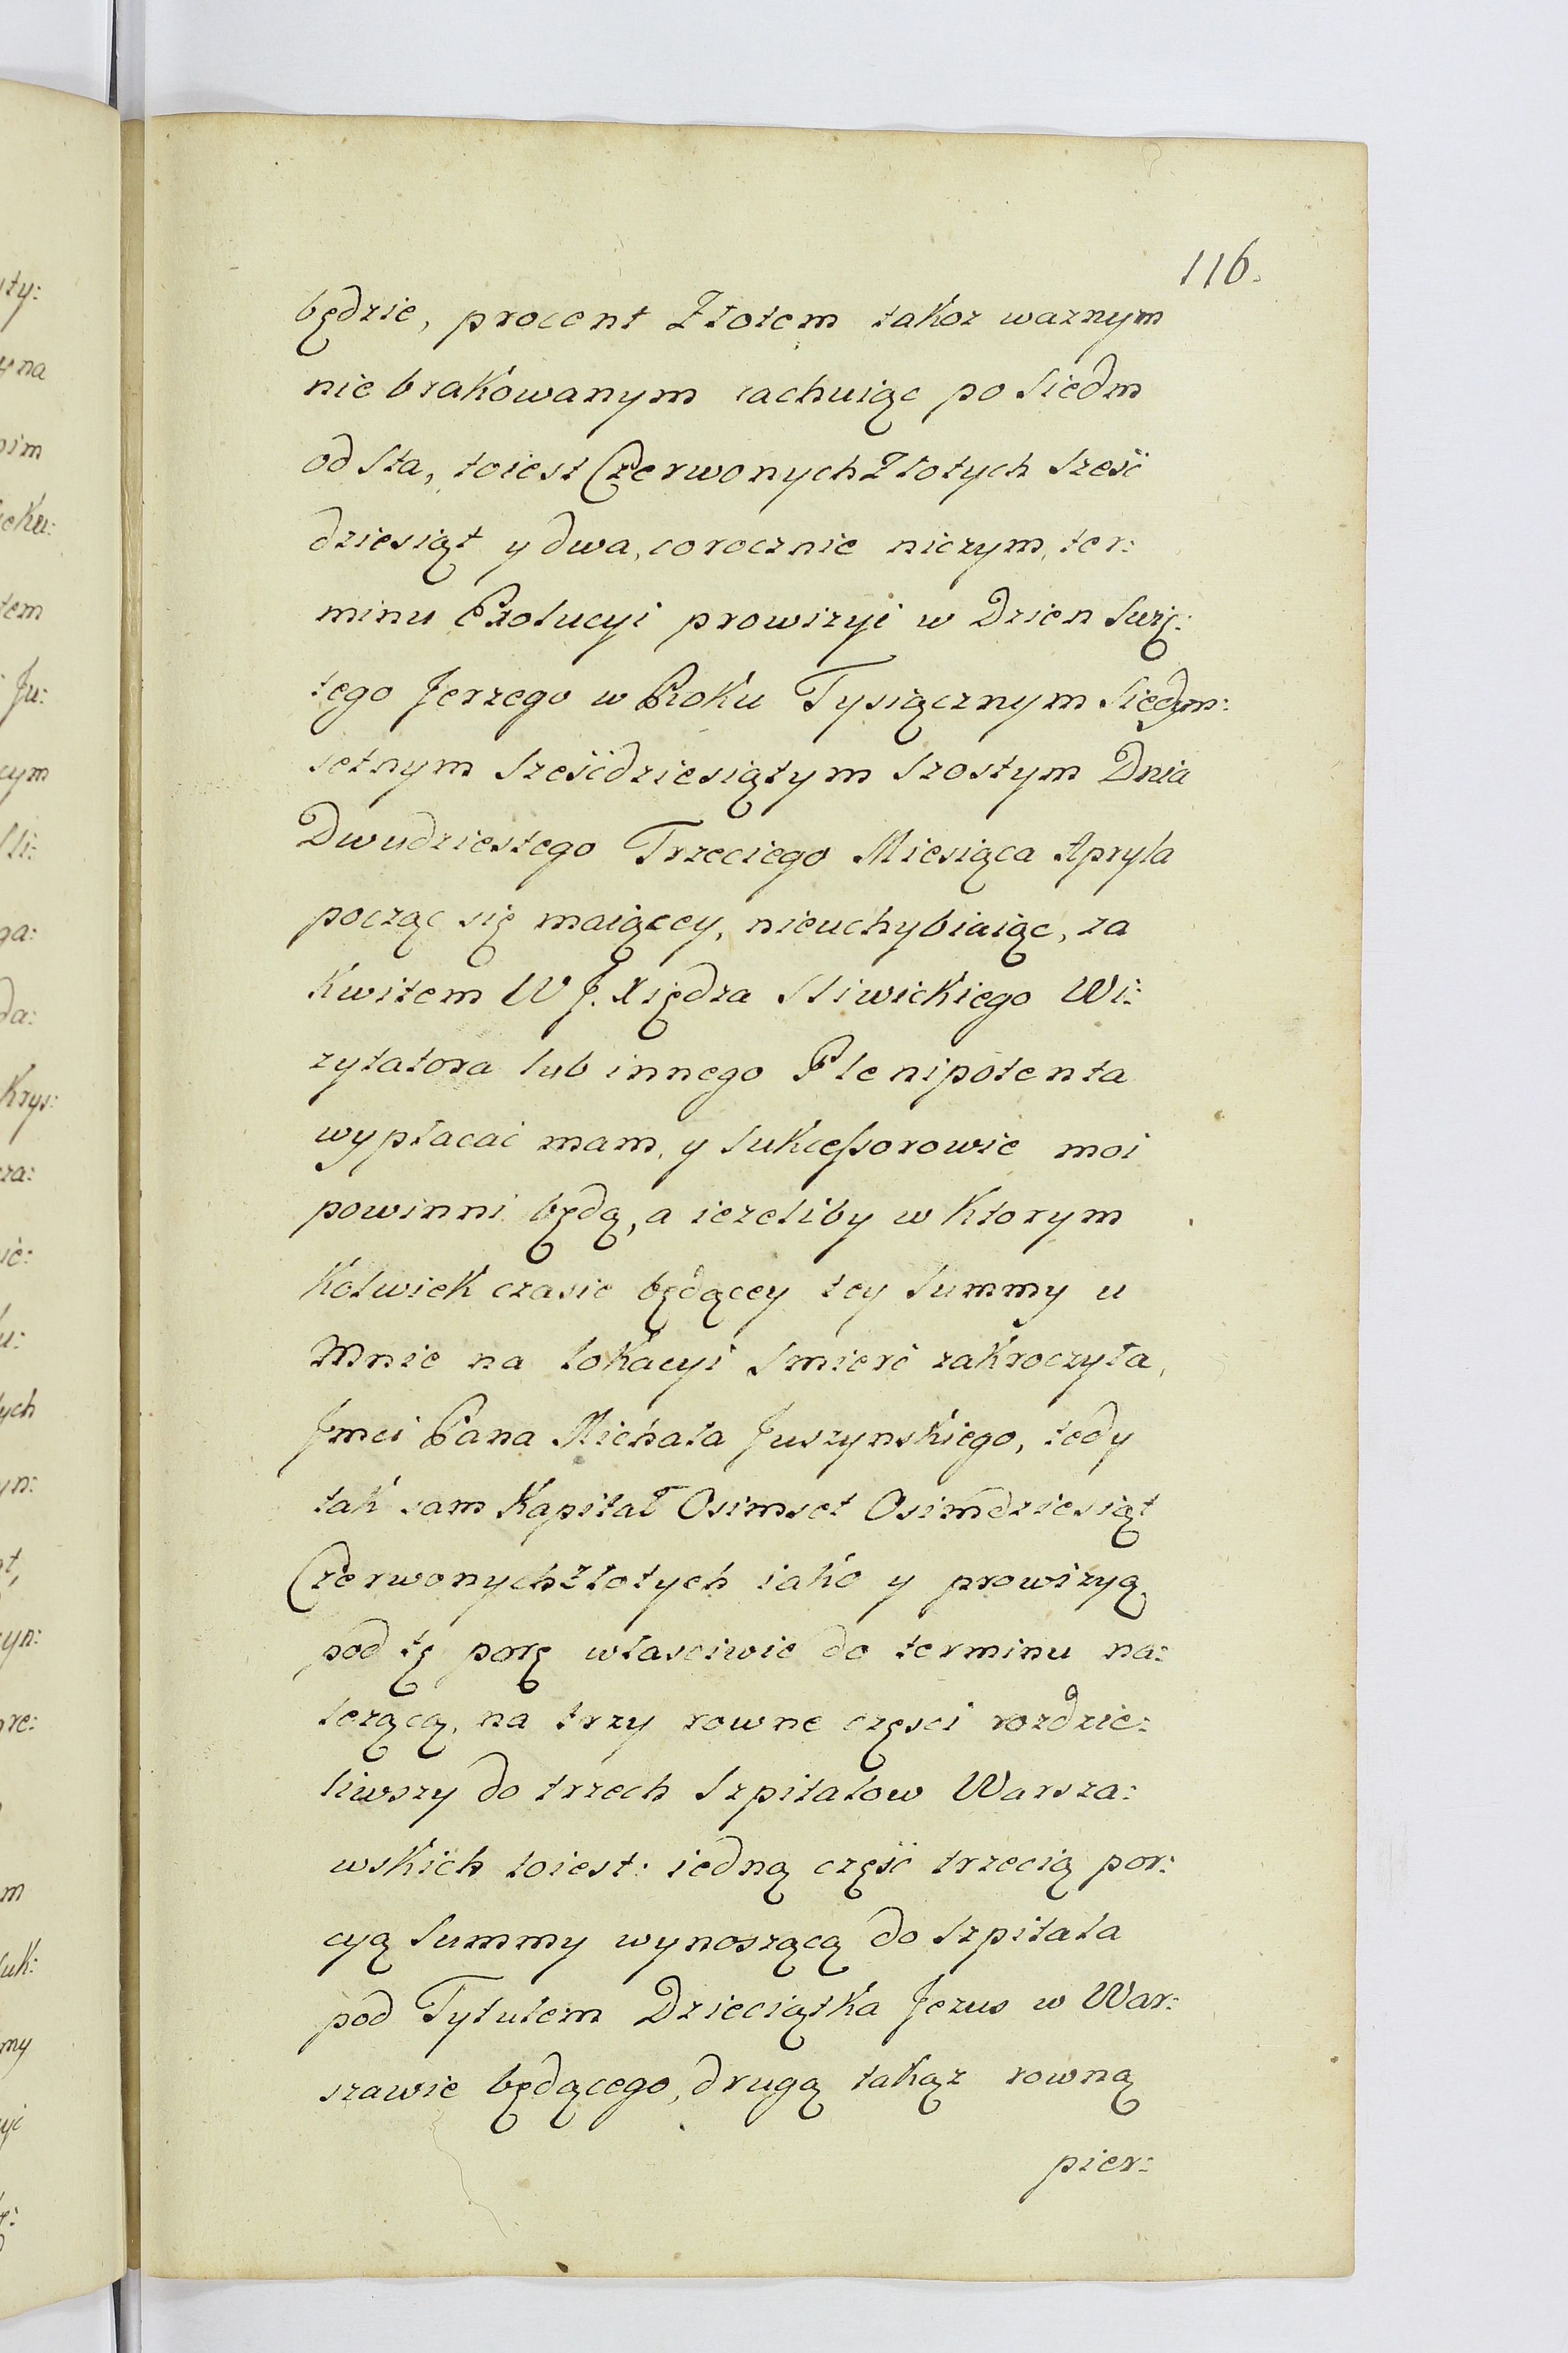 116.
będzie, procent Złotem takoz waznym
nie brakowanym rachuiąc po Siedm
od Sta, toiest Czerwonych Złotych Sześć
dziesiąt y dwa, corocznie niczym, ter:
minu Exolucyi prowizyi w Dzien Swię:
tego Jerzego w Roku Tysiącznym Siedym:
setnym Sześćdziesiątym Szostym Dnia
Dwudziestego Trzeciego Miesiąca Apryla
począc się maiącey, nieuchybiaiąc, za
Kwitem W J. Xiędza Sliwickiego Wi:
zytatora lub innego Plenipotenta
wypłacać mam, y Sukcessorowie moi
powinni będą, a iezeliby w Ktorym
Kolwiek czasie będącey tey Summy u
Mnie na lokacyi Smierć zakroczyła,
Jmci Pana Michała Juszynskiego, tedy
tak sam Kapitał Osimset Osimdziesiąt
Czerwonych Złotych iako y prowizyą
pod tę porę własciwie do terminu na:
lezącą, na trzy rowne częsci rozdzie:
liwszy do trzech Szpitalow Warsza:
wskich toiest: iedną część trzecią por:
cyą Summy wynoszącą do Szpitala
pod Tytulem Dzieciątka Jezus w War:
szawie będącego, drugą takąz rowną
pier:
uty:
y na
nim
tem
Ju:
cym
ga:
da:
Krys:
za:
ie:
u:
ych
yn:
t,
cyn:
re:
m
Suk:
my
yi